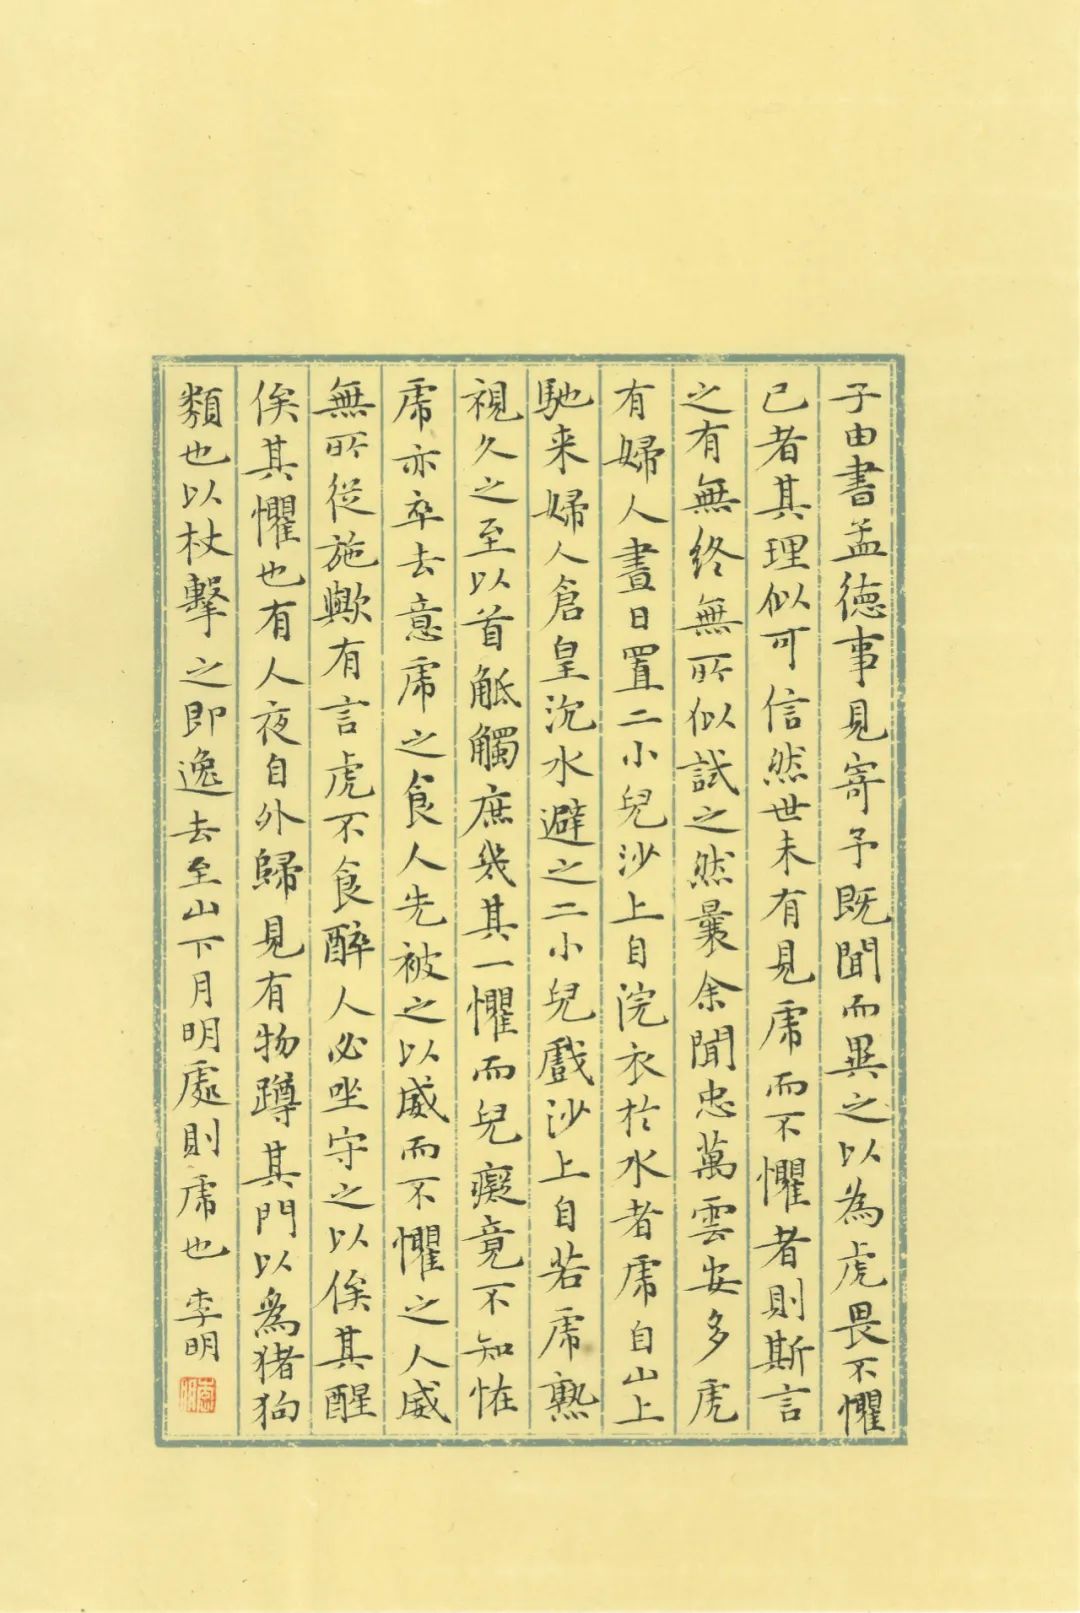 子由書孟德事見寄予既聞而異之以為虎畏不懼
己者其理似可信然世未有見虎而不懼者則斯言
之有無終無所似試之然曩余聞忠萬雲安多虎
有婦人晝日置二小兒沙上自浣衣於水者虎自山上
馳来婦人倉皇沉水避之二小兒戲沙上自若虎熟
視久之至以首觝觸庶幾其一懼而兒癡竟不知怪
虎亦卒去意虎之食人先被之以威而不懼之人威
無所從施歟有言虎不食醉人必坐守之以俟其醒
俟其懼也有人夜自外歸見有物蹲其門以為猪狗
類也以杖擊之即逸去至山下月明處則虎也 李明